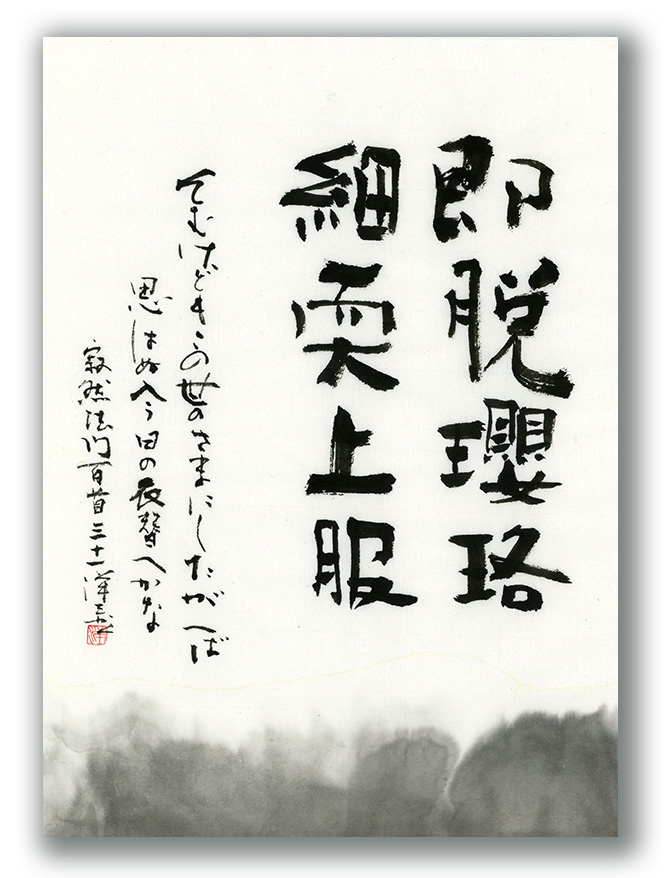 即脱瓔珞
細耎上服
そむけどもこの世のさまにしたがへば
思はぬ今日の衣替へかな
寂然法門百首三十一